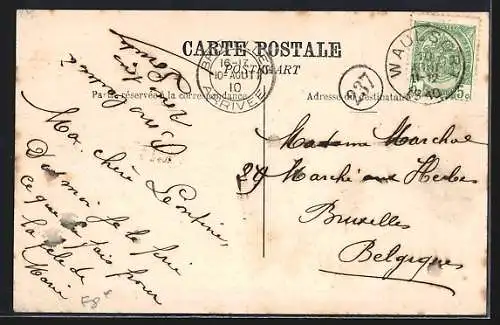 CARTE POSTALE
POSTKAART
Partie réservée à la correspondance
Adresse du destinataire
BRUXELLES
16-17
10 AOUT
10
ARRIVÉE
237
WAULSORT
5c
Ma chère Léontine,
Dis moi je te prie
ce que tu fais pour
la fête de
Marie
F8
Madame Marchal
29 Marché aux Herbes
Bruxelles
Belgique